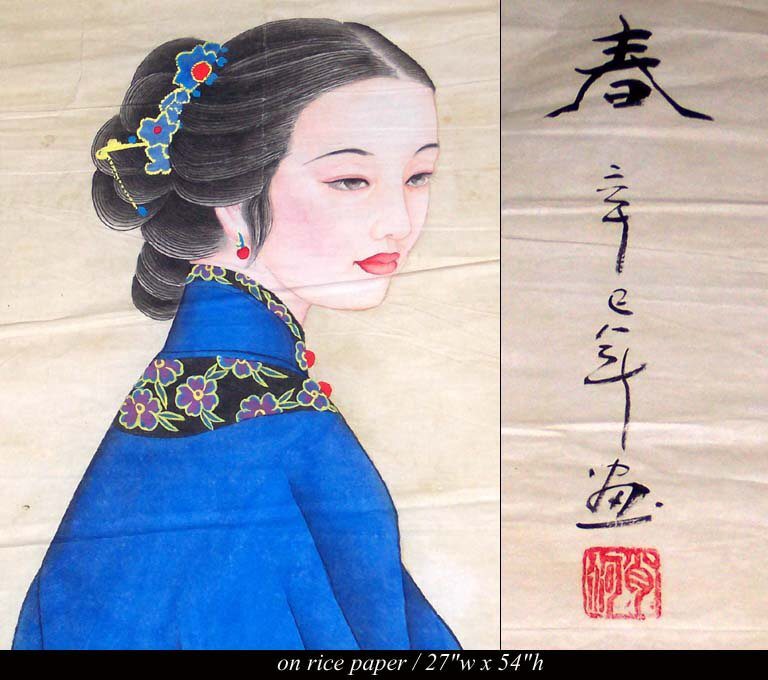 春
辛巳年画
on rice paper / 27"w x 54"h